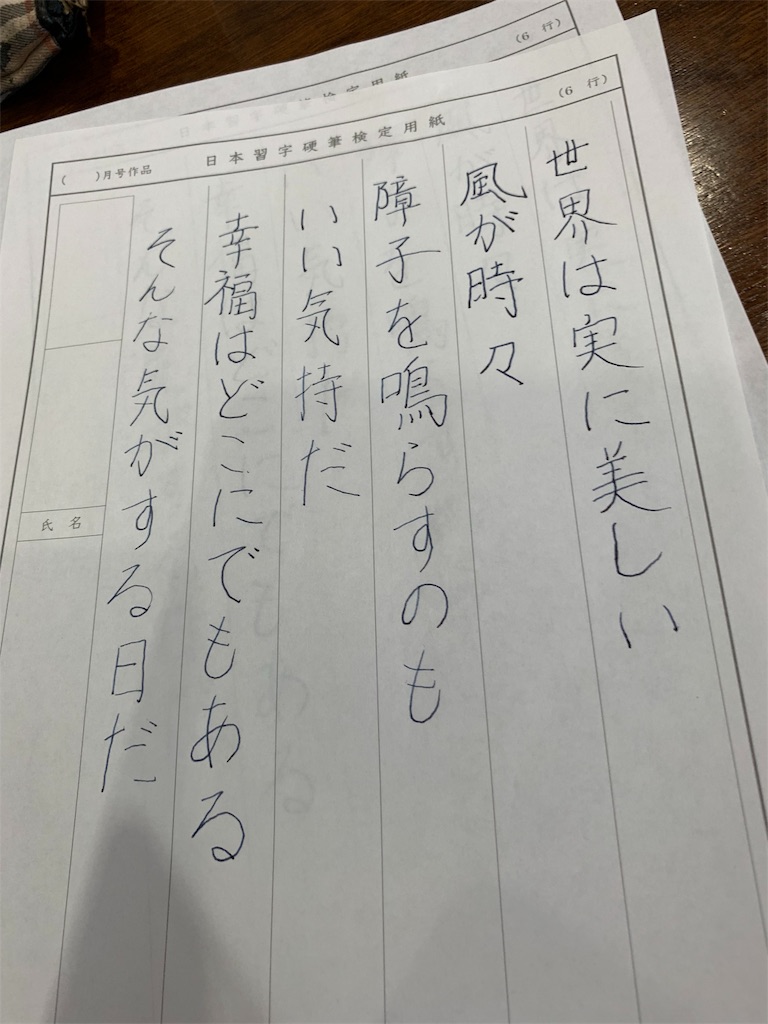 (6 行)
検定用紙
(6 行)
日本習字硬筆検定用紙
( )月号作品
世界は実に美しい
風が時々
障子を鳴らすのも
いい気持だ
幸福はどこにでもある
そんな気がする日だ
氏名